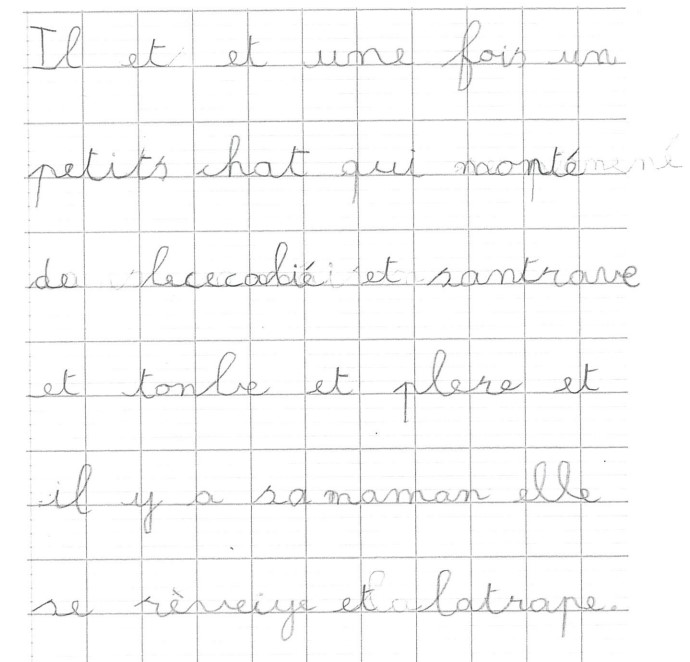 Il et et une fois un
petits chat qui monpté
de lececabié et santrave
et tonbe et plere et
il y a sa maman elle
se rèveiye et latrape.